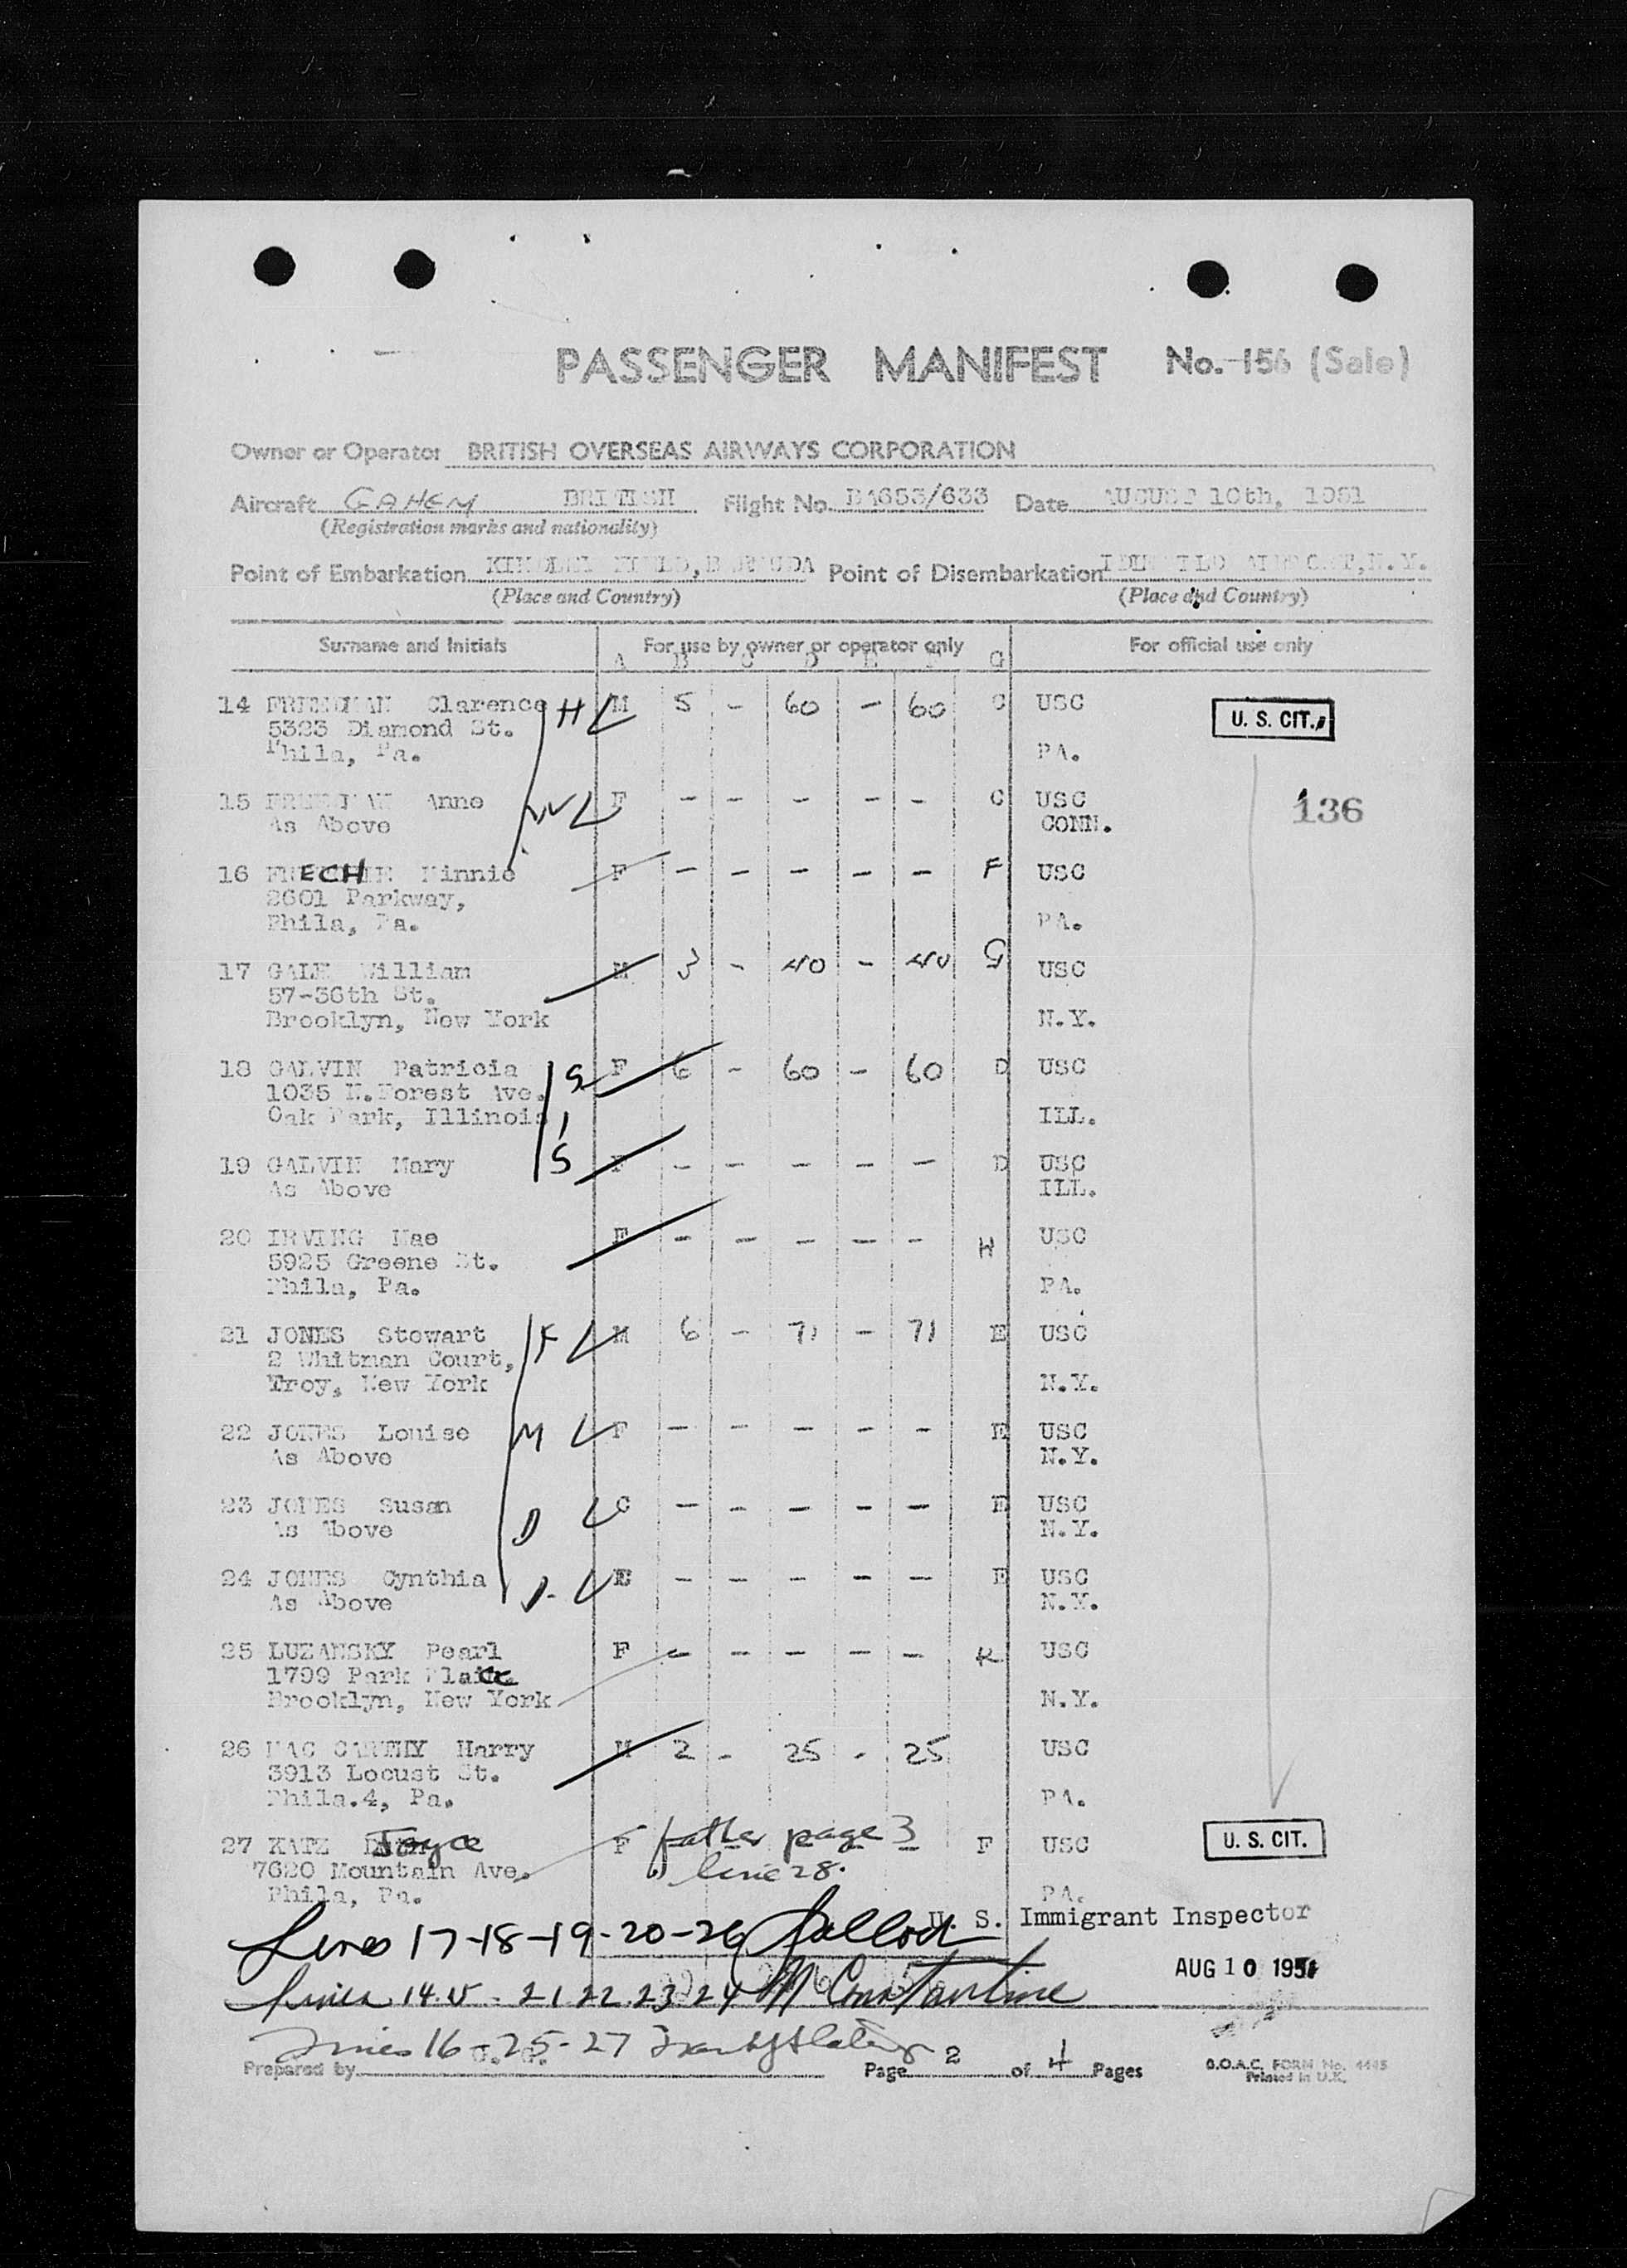 PASSENGER MANIFEST No. 156 (Sale)
Owner or Operator BRITISH OVERSEAS AIRWAYS CORPORATION
Aircraft GAHEM BRITISH Flight No. BA653/633 Date AUGUST 10th, 1951
(Registration marks and nationality)
Point of Embarkation KINDLEY FIELD, BERMUDA Point of Disembarkation IDLEWILD AIRPORT, N.Y.
(Place and Country) (Place and Country)
Surname and Initials For use by owner or operator only For official use only
A B C D E F G
14 Clarence H M 5 - 60 - 60 C USC U. S. CIT.
5323 Diamond St.
Phila, Pa. PA.
15 Anne W F - - - - - C USC 136
As Above CONN.
16 ECH Minnie F - - - - - F USC
2601 Parkway,
Phila, Pa. PA.
17 GALE William M 3 - 40 - 40 G USC
57-36th St.
Brooklyn, New York N.Y.
18 GALVIN Patricia S F 6 - 60 - 60 D USC
1035 N.Forest Ave.
Oak Park, Illinois ILL.
19 GALVIN Mary S F - - - - - D USC
As Above ILL.
20 IRVING Mae F - - - - - H USC
5925 Greene St.
Phila, Pa. PA.
21 JONES Stewart F M 6 - 71 - 71 E USC
2 Whitman Court,
Troy, New York N.Y.
22 JONES Louise M F - - - - - E USC
As Above N.Y.
23 JONES Susan D C - - - - - E USC
As Above N.Y.
24 JONES Cynthia D. E - - - - - E USC
As Above N.Y.
25 LUZANSKY Pearl F - - - - - K USC
1799 Park Place
Brooklyn, New York N.Y.
26 MAC CARTHY Harry M 2 - 25 - 25 USC
3913 Locust St.
Phila.4, Pa. PA.
27 KATZ Joyce F father page 3 F USC U. S. CIT.
7620 Mountain Ave. line 28.
Phila, Pa. PA.
U. S. Immigrant Inspector
Lines 17-18-19-20-26
AUG 10 1951
Lines 14.15 - 21.22.23.24 M Constantine
Lines 16-25-27
Prepared by Page 2 of 4 Pages B.O.A.C. FORM No. 4445
Printed in U.K.